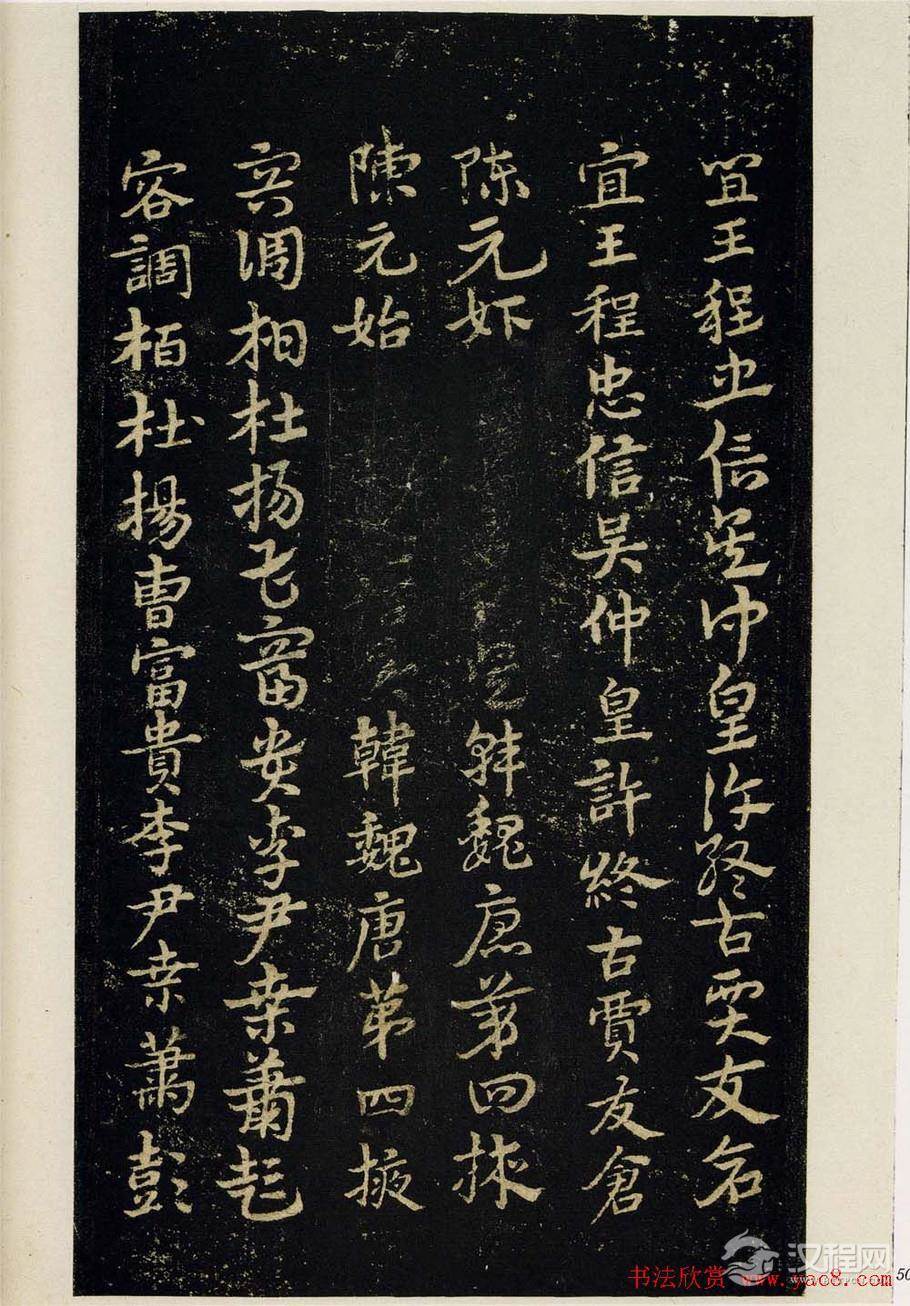 宜王程忠信吴仲皇許終古賈友倉
宜王程忠信吴仲皇許終古賈友倉
陳元始
韓魏唐苐四掖
陳元始
韓魏唐苐四掖
容調柏杜楊曹富貴李尹桒蕭彭
容調柏杜揚曹富貴李尹桒蕭彭
书法欣赏 www.yac8.com
汉程网
50